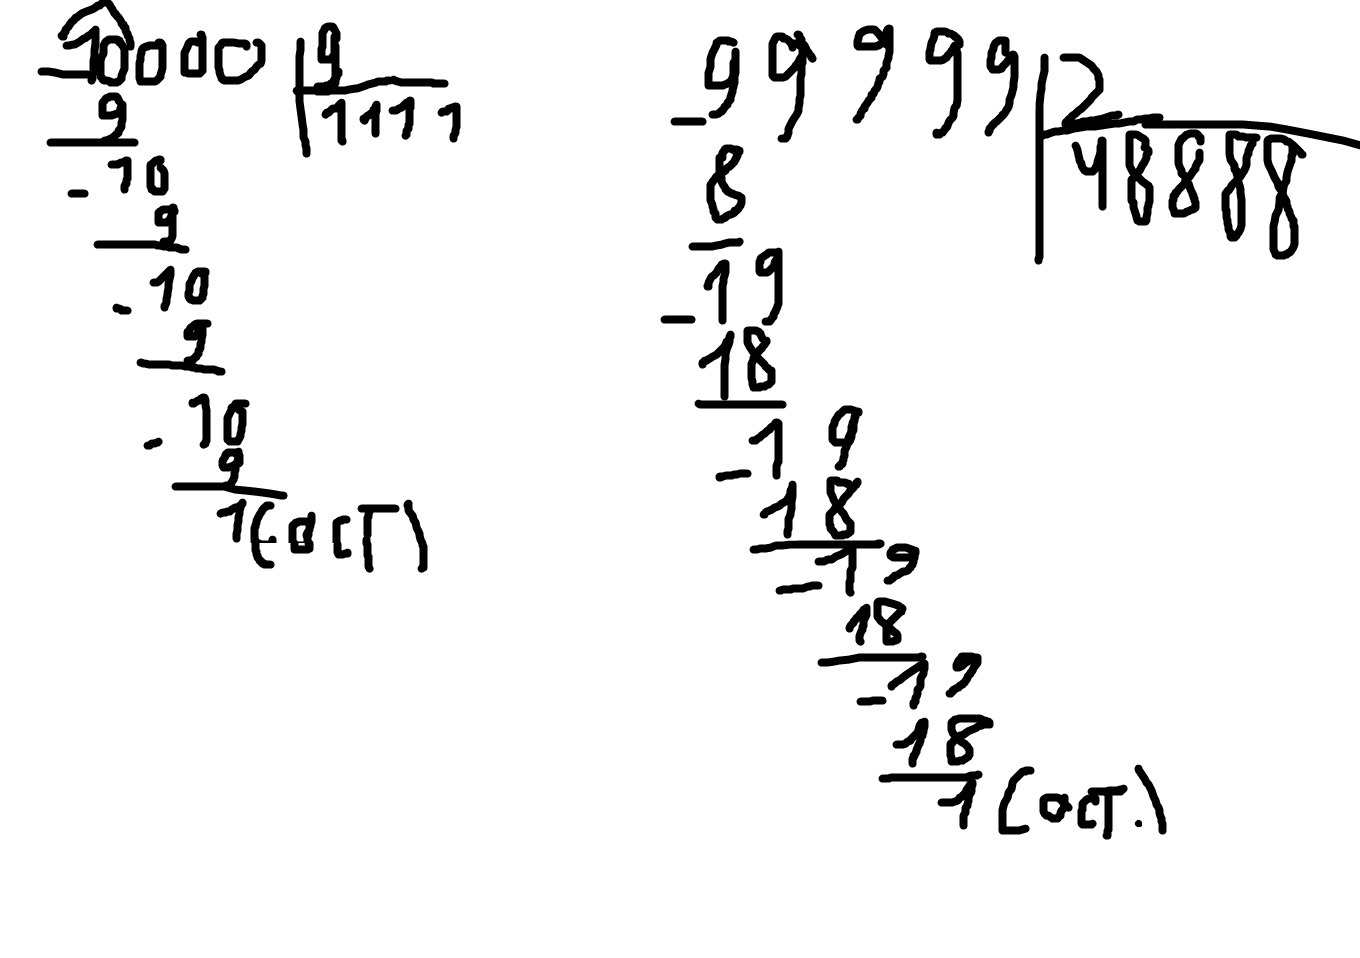 10000 9
9 1111
10
9
10
9
10
9
1(ост)
99999 2
8 48888
19
18
19
18
19
18
19
18
1(ост.)